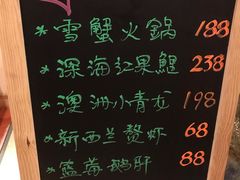 * 雪蟹火鍋 188
* 深海红果鯉 238
* 澳洲小青龙 198
* 新西兰螯虾 68
* 蓝莓鹅肝 88